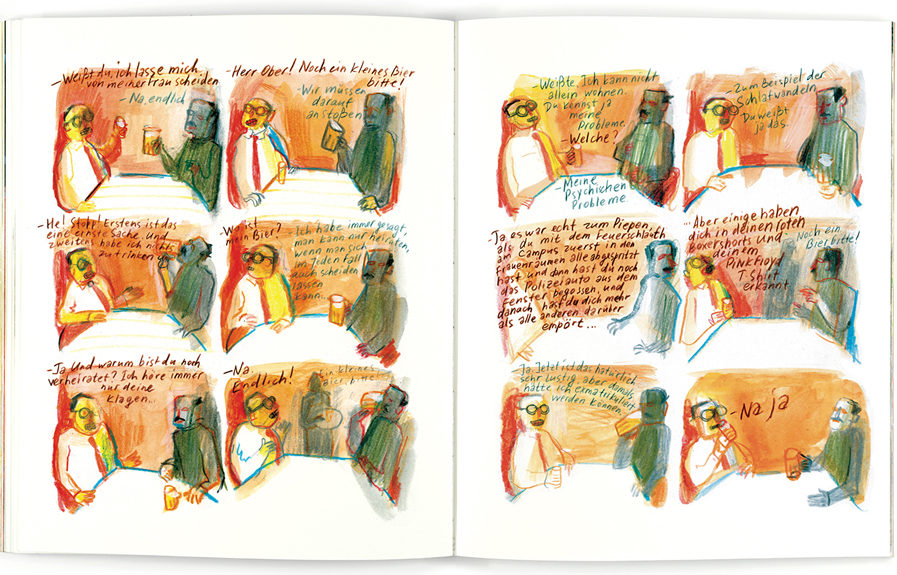 -Weißt du, ich lasse mich
von meiner Frau scheiden
-Na, endlich
-Herr Ober! Noch ein kleines Bier
bitte!
-Wir müssen
darauf
anstoßen
-He! Stopp! Erstens ist das
eine ernste Sache und
zweitens habe ich nichts
zu trinken
-Wo ist
mein Bier?
-Ich habe immer gesagt,
man kann nur heiraten,
wenn man sich
im jeden Fall
auch scheiden
lassen
kann...
-Ja Und warum bist du noch
verheiratet? Ich höre immer
nur deine
Klagen...
-Na.
Endlich!
Ein kleines
Bier bitte!
-Weißte, Ich kann nicht
allein wohnen.
Du kennst ja
meine
Probleme.
-Welche?
-Meine
Psychischen
Probleme.
-Zum Beispiel der
Schlafwandeln
Du weißt
ja das.
-Ja es war echt zum Piepen,
als du mit dem Feuerschlauch
am Campus zuerst in den
Frauenräumen alle abgespritzt
hast und dann hast du noch
das Polizeiauto aus dem
Fenster begossen, und
danach hast du dich mehr
als alle anderen darüber
empört...
...Aber einige haben
dich in deinen roten
Boxershorts und
deinem
Pinkfloyd
T Shirt
erkannt
Noch ein
Bier bitte!
-Ja, Jetzt ist das natürlich
sehr lustig, aber damals
hätte ich exmatrikuliert
werden können...
-Na ja